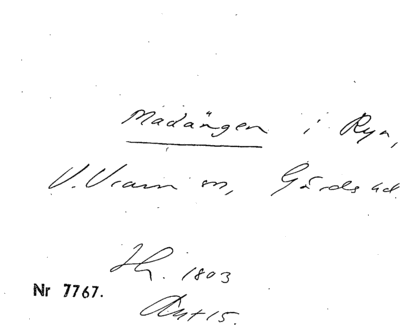 Madängen i Ryn,
V. Vram sn, Gärds hd
Hh. 1803
Nr 7767.
Akt 15.